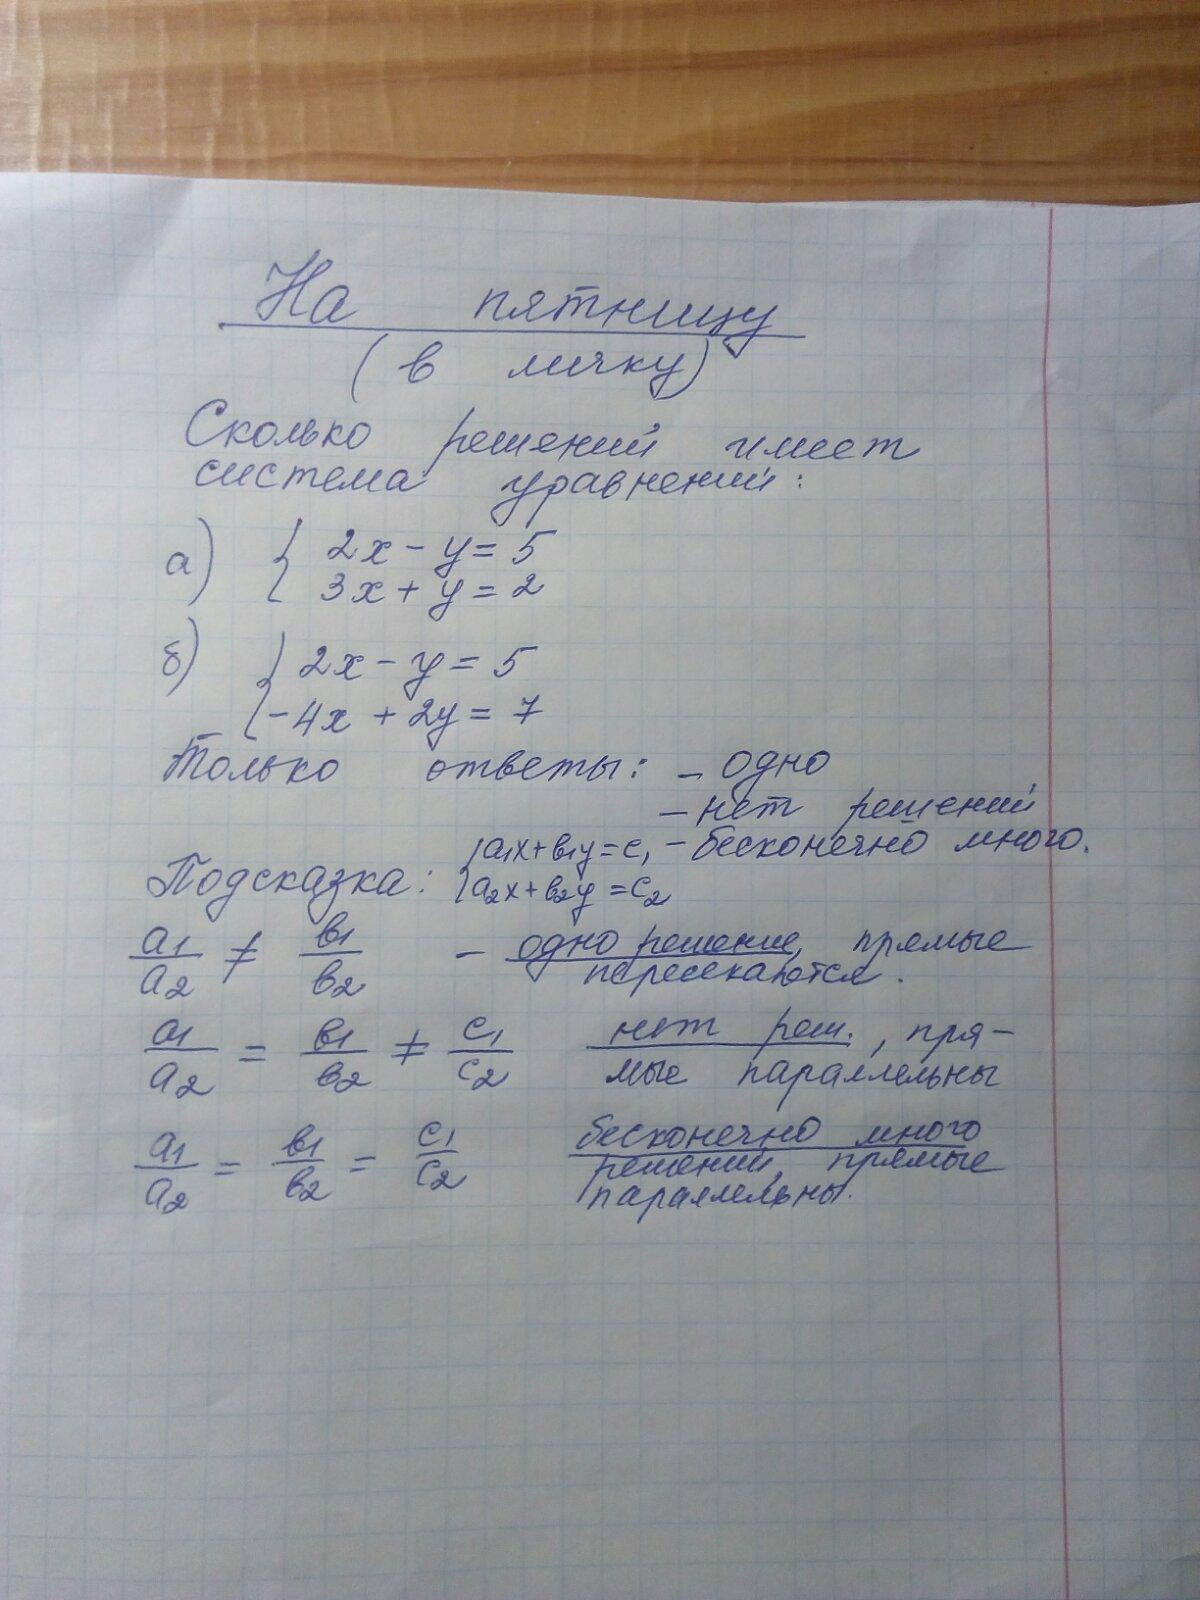 На пятницу
(в личку)
Сколько решений имеет
система уравнений:
а) { 2x - y = 5
3x + y = 2
б) { 2x - y = 5
-4x + 2y = 7
Только ответы: - одно
- нет решений
- бесконечно много.
Подсказка: { a₁x + в₁y = c₁
a₂x + в₂y = c₂
a₁/a₂ ≠ в₁/в₂ - одно решение, прямые
пересекаются.
a₁/a₂ = в₁/в₂ ≠ c₁/c₂ нет реш., пря-
мые параллельны
a₁/a₂ = в₁/в₂ = c₁/c₂ бесконечно много
решений, прямые
параллельны.